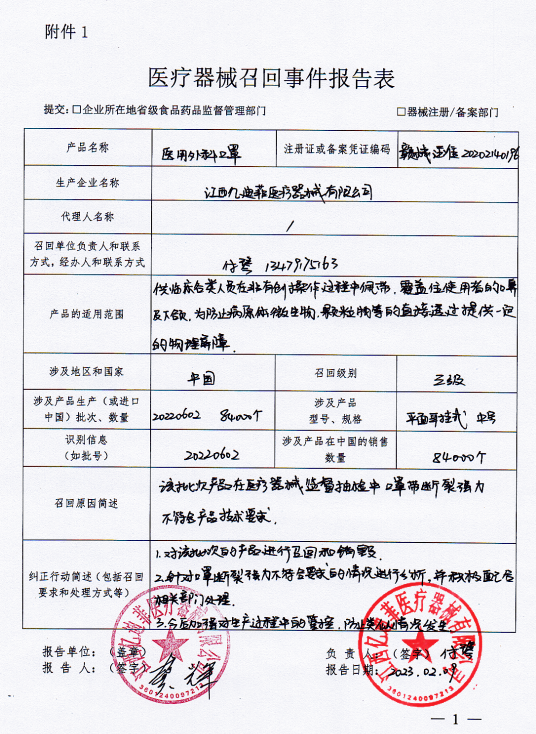 附件 1
医疗器械召回事件报告表
提交：□企业所在地省级食品药品监督管理部门 □器械注册/备案部门
产品名称 医用外科口罩 注册证或备案凭证编码 赣械注准20202140196
生产企业名称 江西亿迪菲医疗器械有限公司
代理人名称 /
召回单位负责人和联系
方式，经办人和联系方式 13479175163
供临床各类人员在非有创操作过程中佩带，覆盖住使用者的口鼻
产品的适用范围 及下颌，为防止病原体微生物、颗粒物等的直接透过提供一定
的物理屏障。
涉及地区和国家 中国 召回级别 三级
涉及产品生产（或进口
中国）批次、数量 20220602 84000个
涉及产品
型号、规格 平面耳挂式 中号
识别信息
（如批号） 20220602
涉及产品在中国的销售
数量 84000个
召回原因简述 该批次产品在医疗器械监督抽检中口罩带断裂强力
不符合产品技术要求。
纠正行动简述（包括召回
要求和处理方式等）
1.对该批次的产品进行召回和销毁。
2.针对口罩断裂强力不符合要求的情况进行分析，并积极配合
相关部门处理。
3.今后加强对生产过程中的管控，防止类似情况发生
报告单位：（盖章） 负责人：（签字）
报告人：（签字） 报告日期：2023.02.09
江西亿迪菲医疗器械有限公司
3601240097213
江西亿迪菲医疗器械有限公司
3601240097213
— 1 —